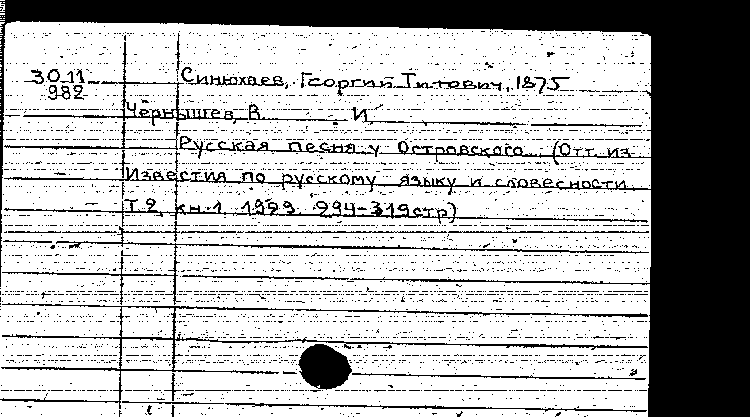 3011
982
Синюхаев, Георгий Титович, 1875
Чернышев, В. И.
Русская песня у Островского (Отт. из
Известия по русскому языку и словесности
Т.2, кн. 1, 1929. 294-319 стр)